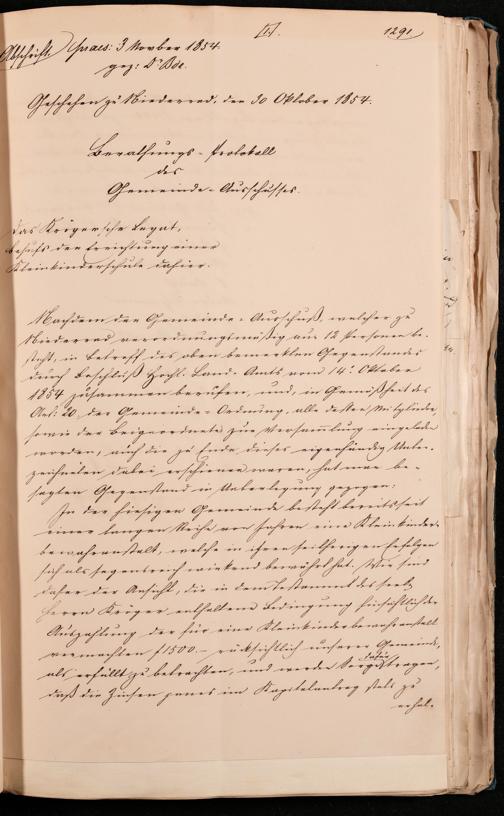 [1].
1291
Abschrift. praes: 3 Novber 1854.
gez: Dr Bör.
Geschehen zu Niederrad, den 30 Oktober 1854.
Berathungs-Protokoll
des
Gemeinde-Ausschusses.
Das Krüger'sche Legat,
behufs der Errichtung einer
Kleinkinderschule dahier.
Nachdem der Gemeinde-Ausschuß, welcher zu
Niederrad verordnungsmäßig aus 12 Personen be-
steht, in Betreff des oben bemerkten Gegenstandes
durch Beschluß Hochl. Land-Amts vom 14t Oktober
1854 zusammen berufen, und, in Gemäßheit des
Art: 20 der Gemeinde-Ordnung, alle dessen Mitglieder,
sowie der Beigeordnete zur Versammlung eingeladen
worden, auch die zu Ende dieses eigenhändig Unter-
zeichneten dabei erschienen waren, hat man be-
sagten Gegenstand in Ueberlegung gezogen:
In der hiesigen Gemeinde besteht bereits seit
einer langen Reihe von Jahren eine Kleinkinder-
bewahranstalt, welche in ihren seitherigen Erfolgen
sich als segensreich wirkend bewährt hat. Wir sind
daher der Ansicht, die in dem Testament des seel.
Herrn Krüger enthaltene Bedingung hinsichtlich der
Auszahlung der für eine Kleinkinderbewahranstalt
vermachten f1500.- rücksichtlich unserer Gemeinde,
als erfüllt zu betrachten, und werden dafür Sorge tragen,
daß die Zinsen jenes im Kapitalbetrag stets zu
erhal-